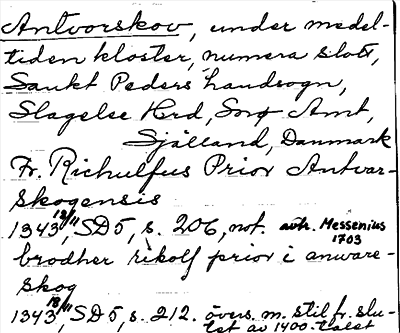 Antvorskov, under medel-
tiden kloster, numera slott,
Sankt Peders landsogn,
Slagelse Hrd, Sorø Amt,
Sjælland, Danmark
Fr. Richulfus Prior Antvar-
skogensis
1343 18/11, SD5, s. 206, not. avtr. Messenius
1703
brodher rikolf prior i anware-
skog
1343 18/11, SD5, s. 212. övers. m. stil fr. slu-
tet av 1400-talet